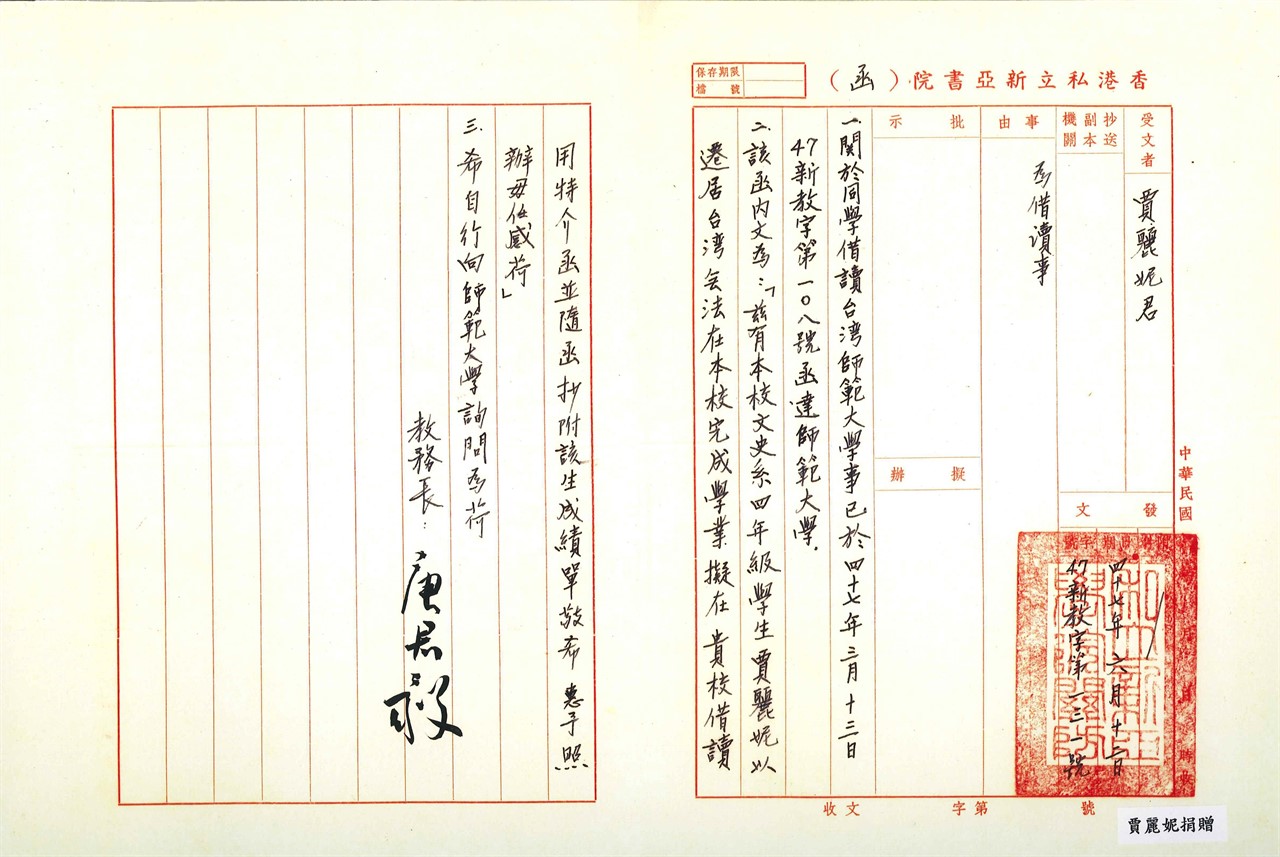 香港私立新亞書院（函）
保存期限
檔號
受文者
賈麗妮君
抄送副本機關
事由
為借讀事
批示
擬辦
發文
日期字號
四十七年六月十二日
47新教字第一三一號
中華民國
一.關於同學借讀台湾師範大學事已於四十七年三月十三日
47新教字第一〇八號函達師範大學.
二.該函內文為：「茲有本校文史系四年級學生賈麗妮以
遷居台湾無法在本校完成學業擬在貴校借讀
用特介函並隨函抄附該生成績單敬希 惠予照
辦毋任感荷」
三.希自行向師範大學詢問為荷
教務長：
唐君毅
收文 字第 號
賈麗妮捐贈